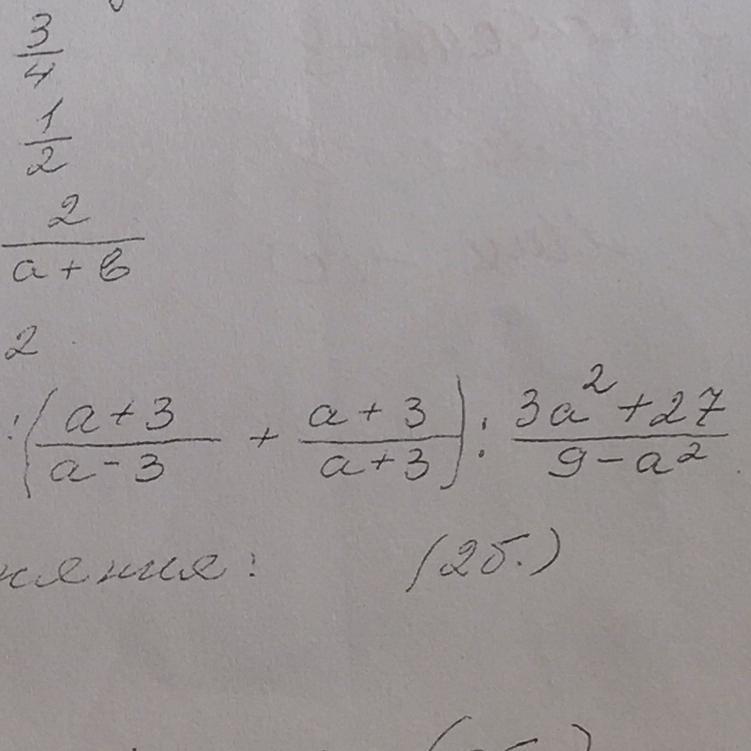 3/4
1/2
2/(a+b)
2
: ((a+3)/(a-3) + (a+3)/(a+3)) : (3a²+27)/(9-a²)
(2б.)